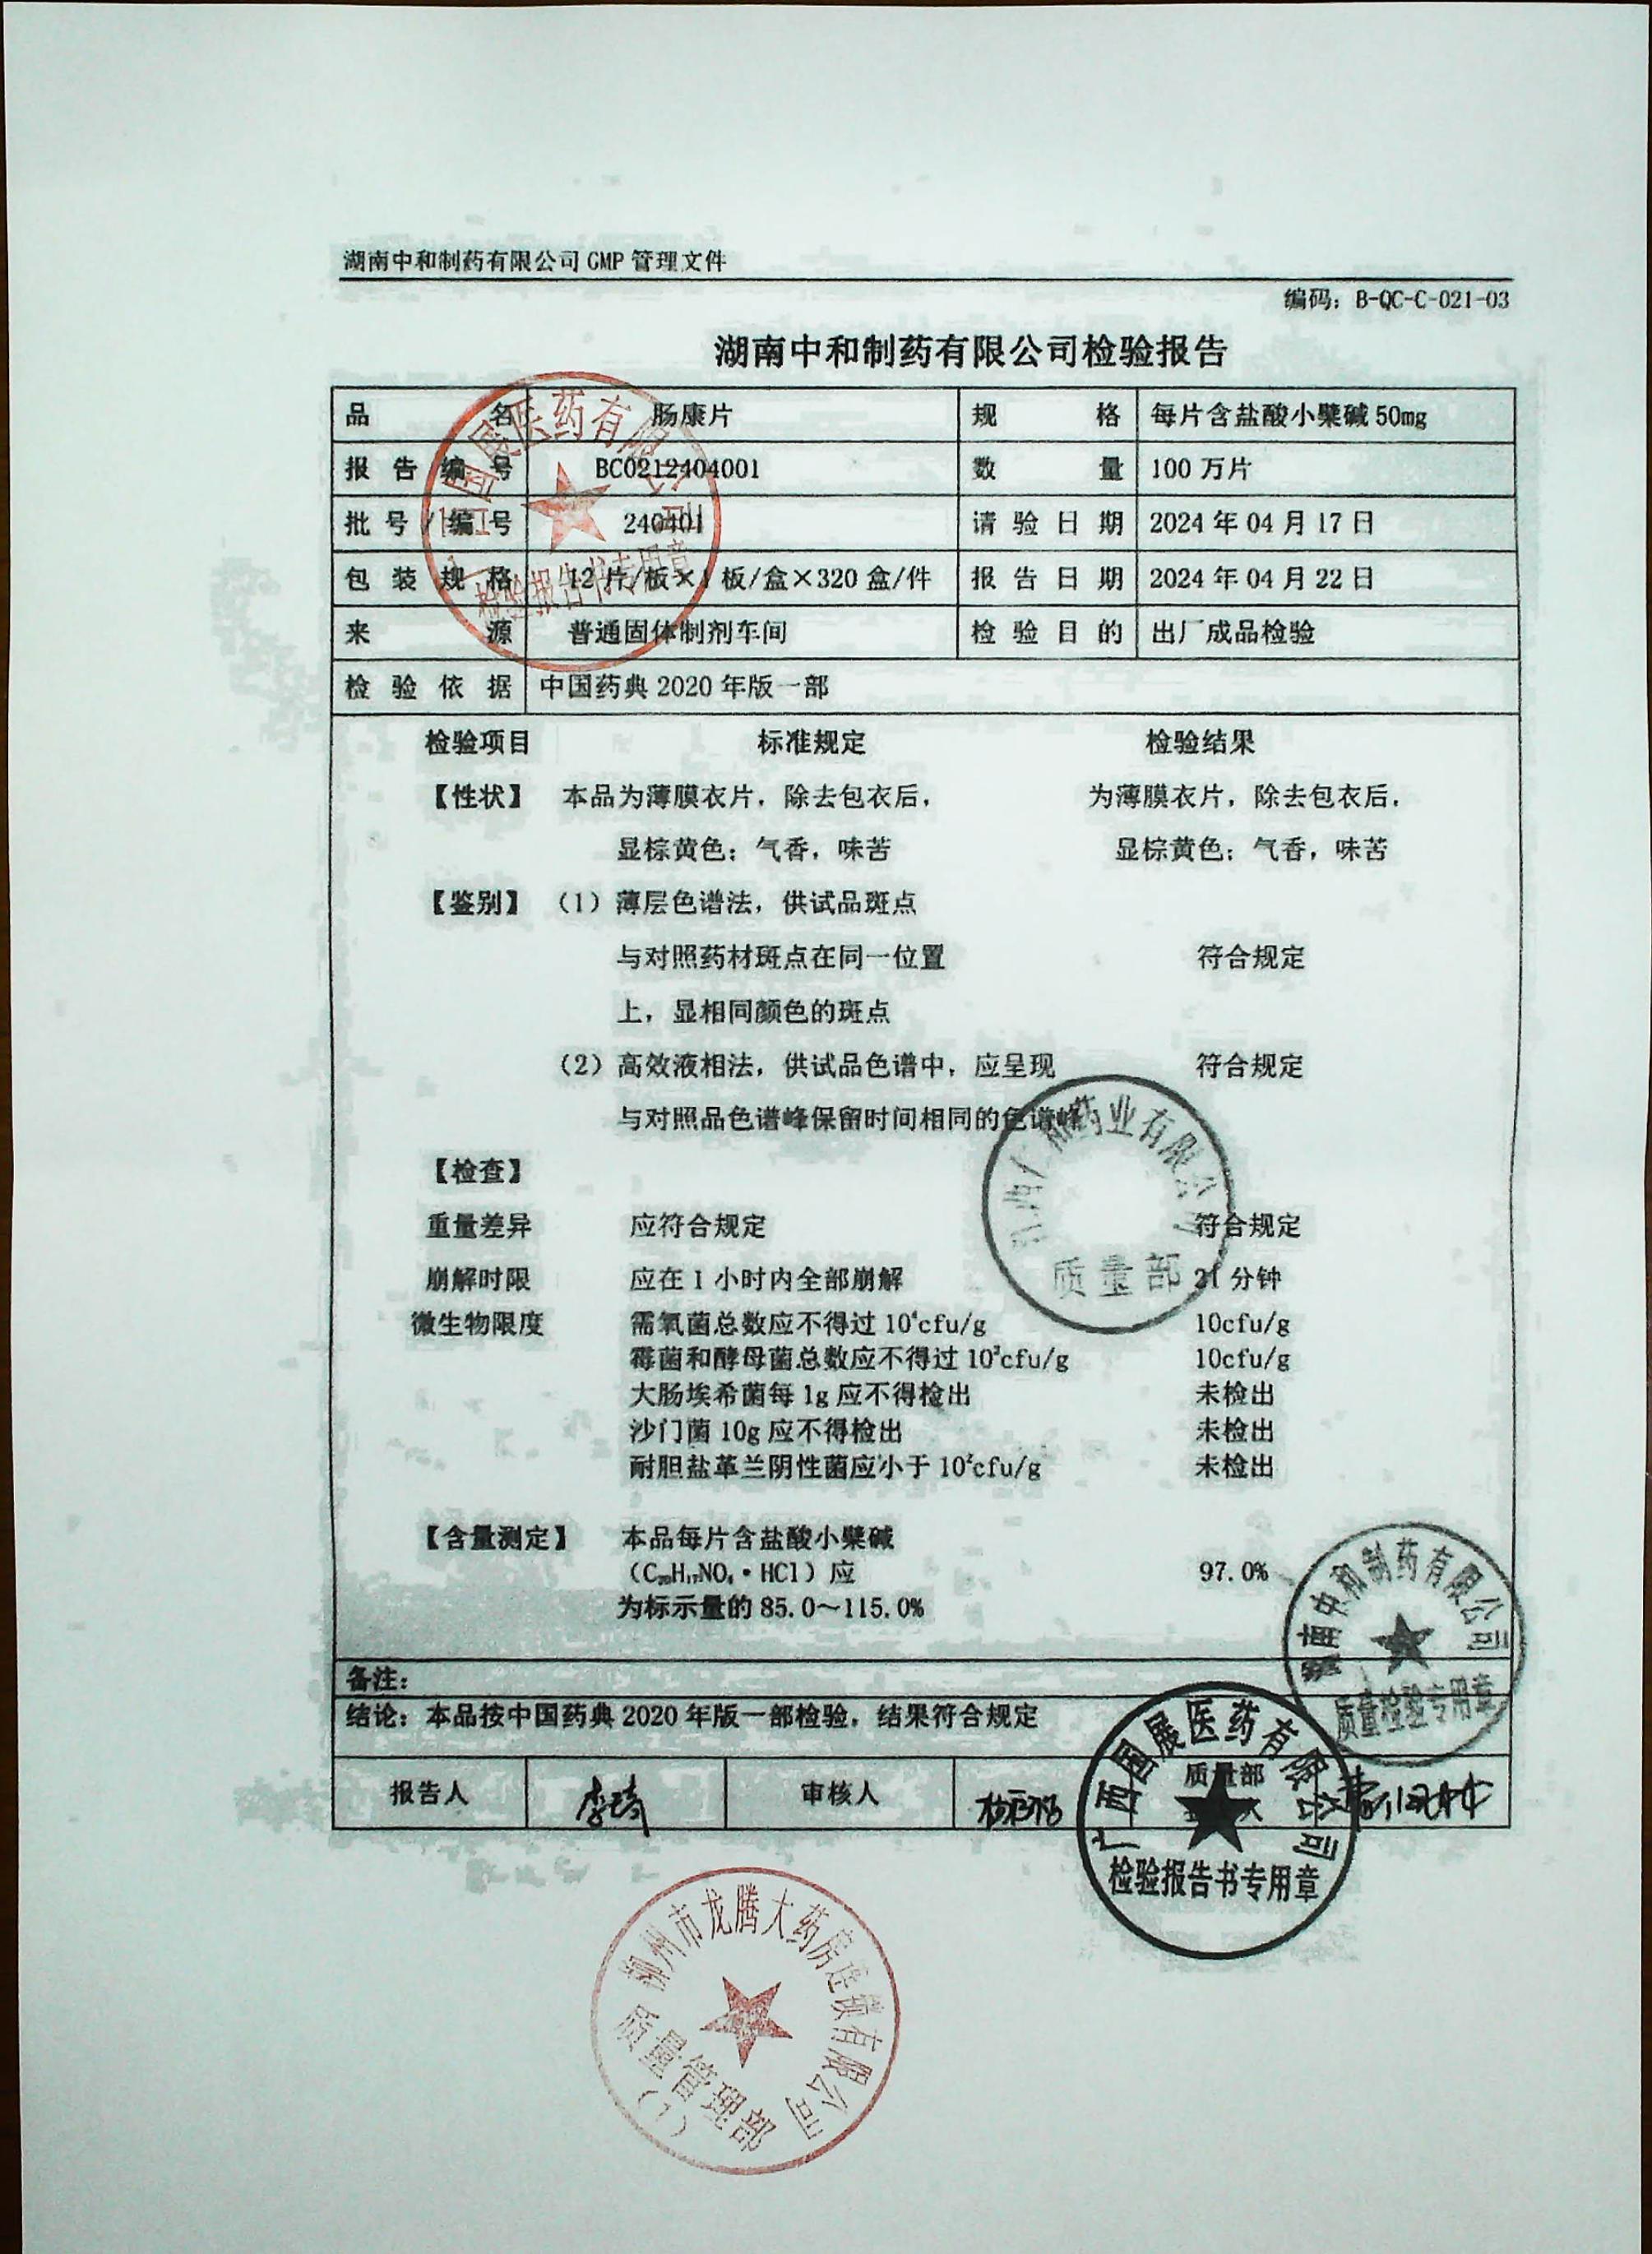 湖南中和制药有限公司 GMP 管理文件
编码：B-QC-C-021-03
湖南中和制药有限公司检验报告
品名 肠康片 规格 每片含盐酸小檗碱 50mg
报告编号 BC0212404001 数量 100 万片
批号/编号 240401 请验日期 2024 年 04 月 17 日
包装规格 12 片/板×1 板/盒×320 盒/件 报告日期 2024 年 04 月 22 日
来源 普通固体制剂车间 检验目的 出厂成品检验
检验依据 中国药典 2020 年版一部
检验项目 标准规定 检验结果
【性状】 本品为薄膜衣片，除去包衣后， 为薄膜衣片，除去包衣后，
显棕黄色；气香，味苦 显棕黄色；气香，味苦
【鉴别】（1）薄层色谱法，供试品斑点
与对照药材斑点在同一位置 符合规定
上，显相同颜色的斑点
（2）高效液相法，供试品色谱中，应呈现 符合规定
与对照品色谱峰保留时间相同的色谱峰
【检查】
重量差异 应符合规定 符合规定
崩解时限 应在 1 小时内全部崩解 21 分钟
微生物限度 需氧菌总数应不得过 10⁴cfu/g 10cfu/g
霉菌和酵母菌总数应不得过 10²cfu/g 10cfu/g
大肠埃希菌每 1g 应不得检出 未检出
沙门菌 10g 应不得检出 未检出
耐胆盐革兰阴性菌应小于 10²cfu/g 未检出
【含量测定】 本品每片含盐酸小檗碱
（C₂₀H₁₇NO₄·HCl）应 97.0%
为标示量的 85.0～115.0%
备注：
结论：本品按中国药典 2020 年版一部检验，结果符合规定
报告人 李琦 审核人 质量部
广西国展医药有限公司
检验报告书专用章
药业有限公司
质量部
湖南中和制药有限公司
质量检验专用章
广西国展医药有限公司
检验报告书专用章
柳州市龙腾大药房连锁有限公司
质量管理部
（1）